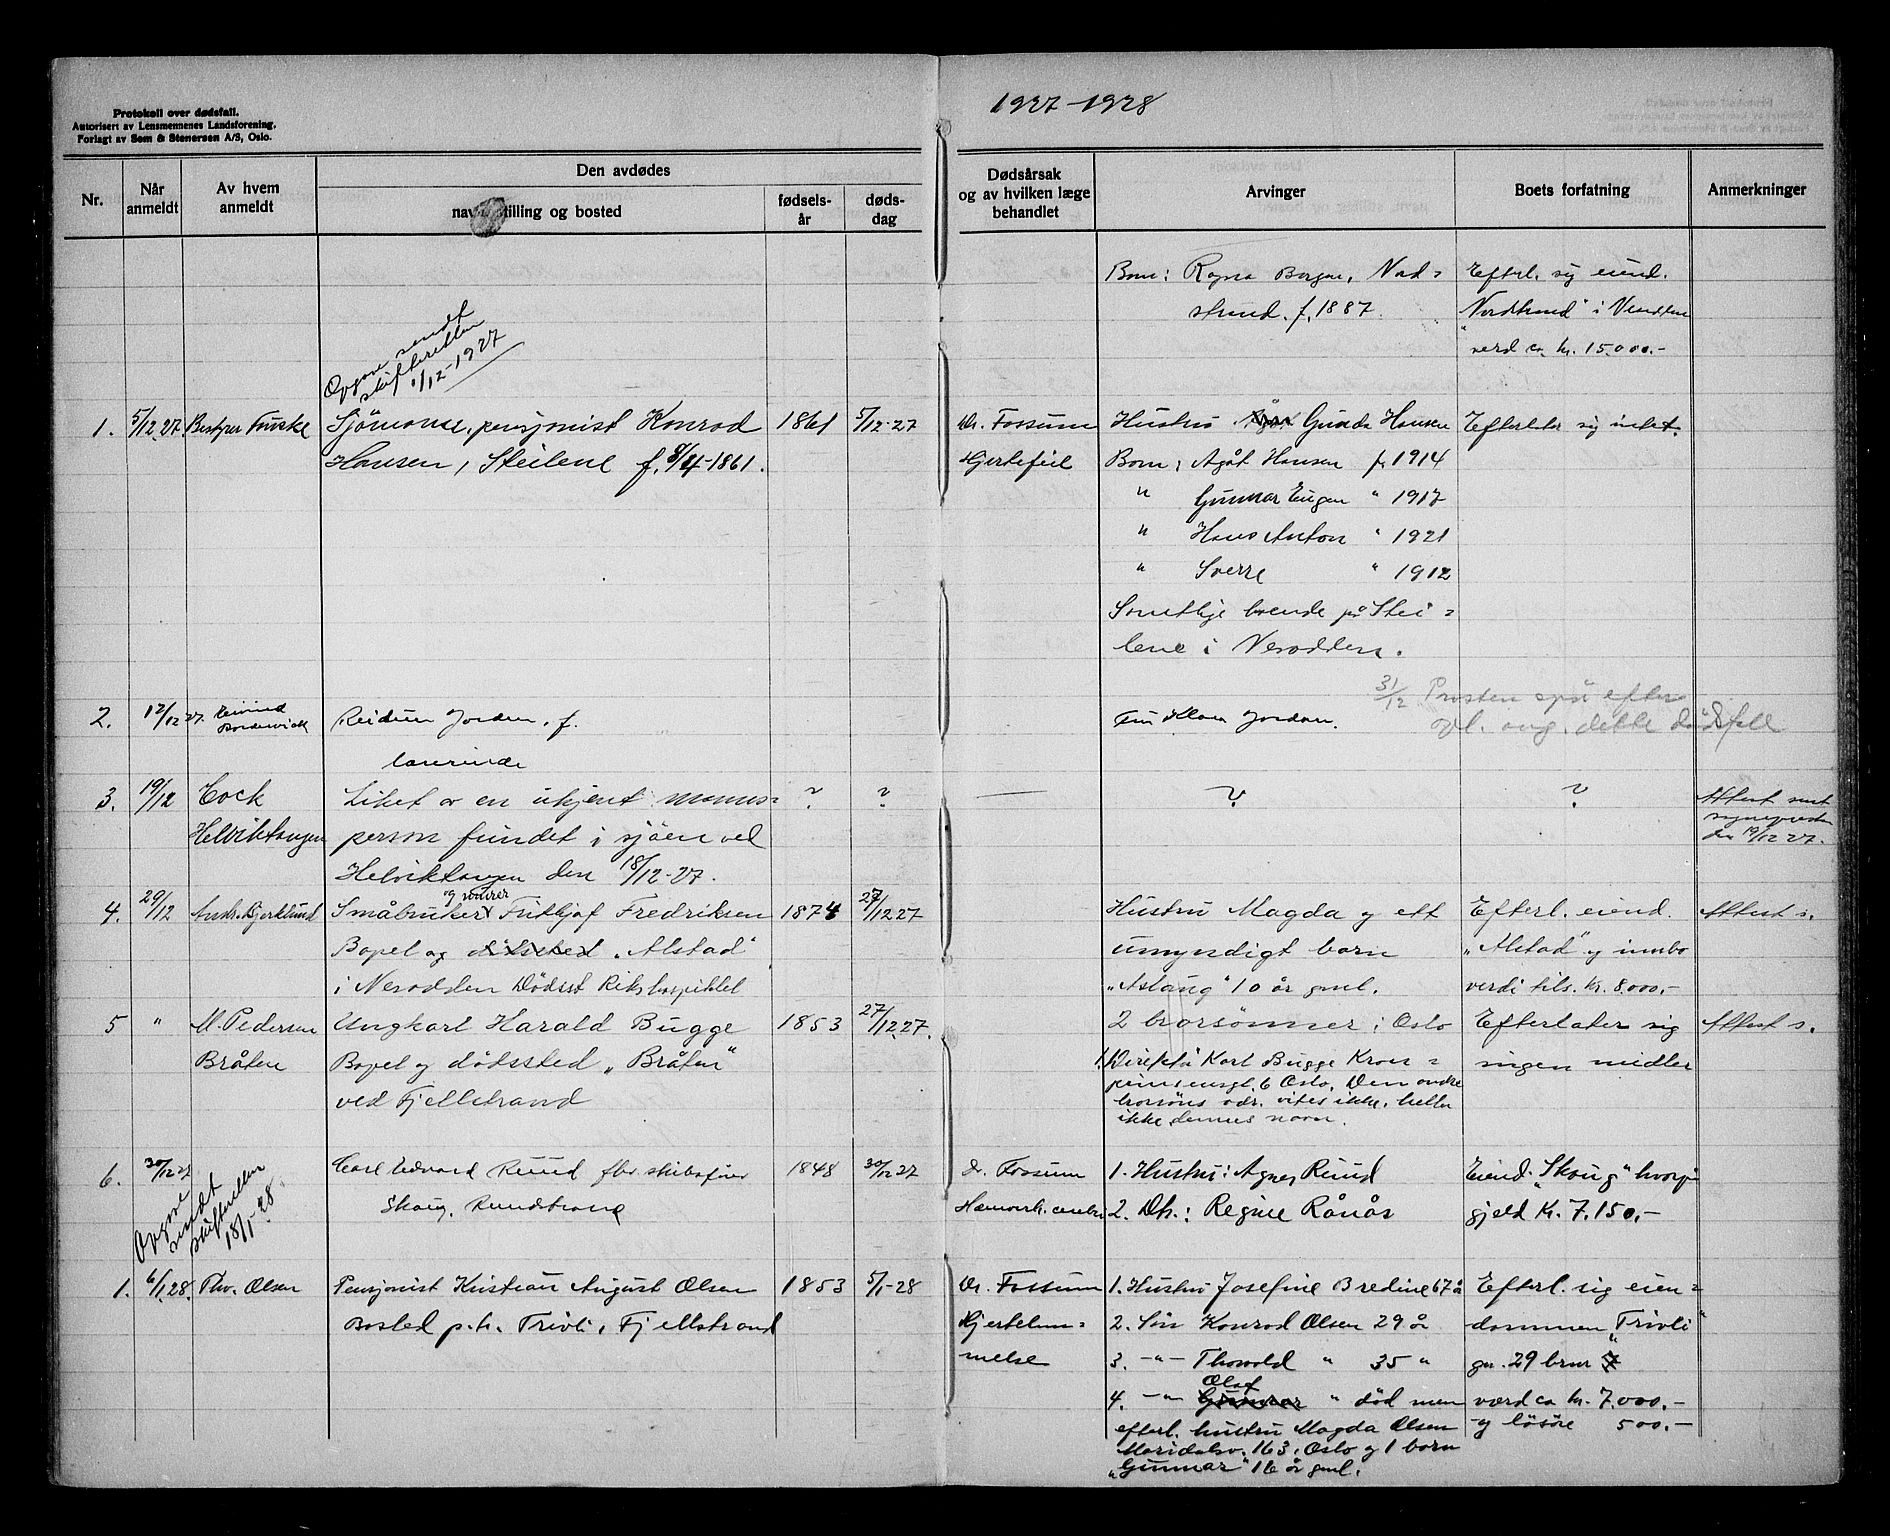 Protokoll over dødsfall.
Autorisert av Lensmennenes Landsforening.
Forlagt av Sem & Stenersen A/S, Oslo.
1927-1928
Nr.
Når anmeldt
Av hvem anmeldt
Den avdødes
navn, stilling og bosted
fødsels-
år
døds-
dag
Dødsårsak
og av hvilken læge
behandlet
Arvinger
Boets forfatning
Anmerkninger
Barn: Ragna Bergan, Nord=
strand. f. 1887.
Efterl. sig eiend.
"Nordstrand" i Nesodden
verd ca. kr. 15.000.-
Opgave sendt
skifteretten
1/12-1927
1. 5/12 27 Bestyrer Fuske
Sjömann, pensjonist Konrad
Hansen, Steilene f. 8/4-1861.
1861 5/12-27
Dr. Fossum
Hjertefeil
Hustru Gunda Hansen
Barn: Agåt Hansen f. 1914
" Gunnar Eugen " 1917
" Hans Anton " 1921
" Sverre " 1912
Samtlige boende på Stei=
lene i Nesodden.
Efterlater sig intet.
2. 12/12 27.
Reidun Jordan, f.
Fru Klara Jordan.
31/12 Presten spør efter
opl. ang. dette dødsfall
3. 19/12 Cock
Helviktangen
Liket av en ukjent manns=
person fundet i sjöen ved
Helviktangen den 18/12-27.
? ?
— ? ?
Attest sendt
sognepresten
den 19/12 27.
4. 29/12 Andr. Bjerklund
og murer
Småbruker Fritjof Fredriksen
Bopel og dödssted "Alstad"
i Nesodden Dödsst. Rikshospitalet
1874 27/12 27
Hustru Magda og ett
umyndigt barn
"Aslaug" 10 år gml.
Efterl. eiend.
"Alstad" og innbo
verdi tils. kr. 8.000.-
Attest s.
5 " M. Pedersen
Bråten
Ungkarl Harald Bugge
Bopel og dödssted "Bråten"
ved Fjellstrand
1853 27/12 27.
2 brorsönner i Oslo
1. Direktör Karl Bugge Kron=
prinsensgt. 6 Oslo. Den andre
brorsöns adr. vites ikke, heller
ikke dennes navn.
Efterlater sig
ingen midler
Attest s.
6. 30/12 27
Carl Edvard Ruud fhv. skibsfører
Skaug, Rundstrand
1848 30/12 27
Dr. Fossum
Hæmorrh. cerebri
1. Hustru: Agnes Ruud
2. Dtr.: Regine Rånås
Eiend. "Skaug" hvorpå
gjeld kr. 7.150.-
Opgave
sendt
skifteretten
18/1-28.
1. 6/1 28. Thv. Olsen
Pensjonist Kristian August Olsen
Bosted p.t. Trivli, Fjellstrand
1853 5/1-28
Dr. Fossum
Hjertelam=
melse
1. Hustru Josefine Bredine 67 å
2. Sön Konrad Olsen 29 år
3. -"- Thorvald " 35 "
Olaf
4. -"- Gunnar " död men
efterl. hustru Magda Olsen
Maridalsv. 163, Oslo og 1 barn
"Gunnar" 16 år gml.
Efterl. sig eien=
dommen "Trivli"
gnr. 29 brnr 7
værd ca kr. 7.000.-
og lösöre 500.-